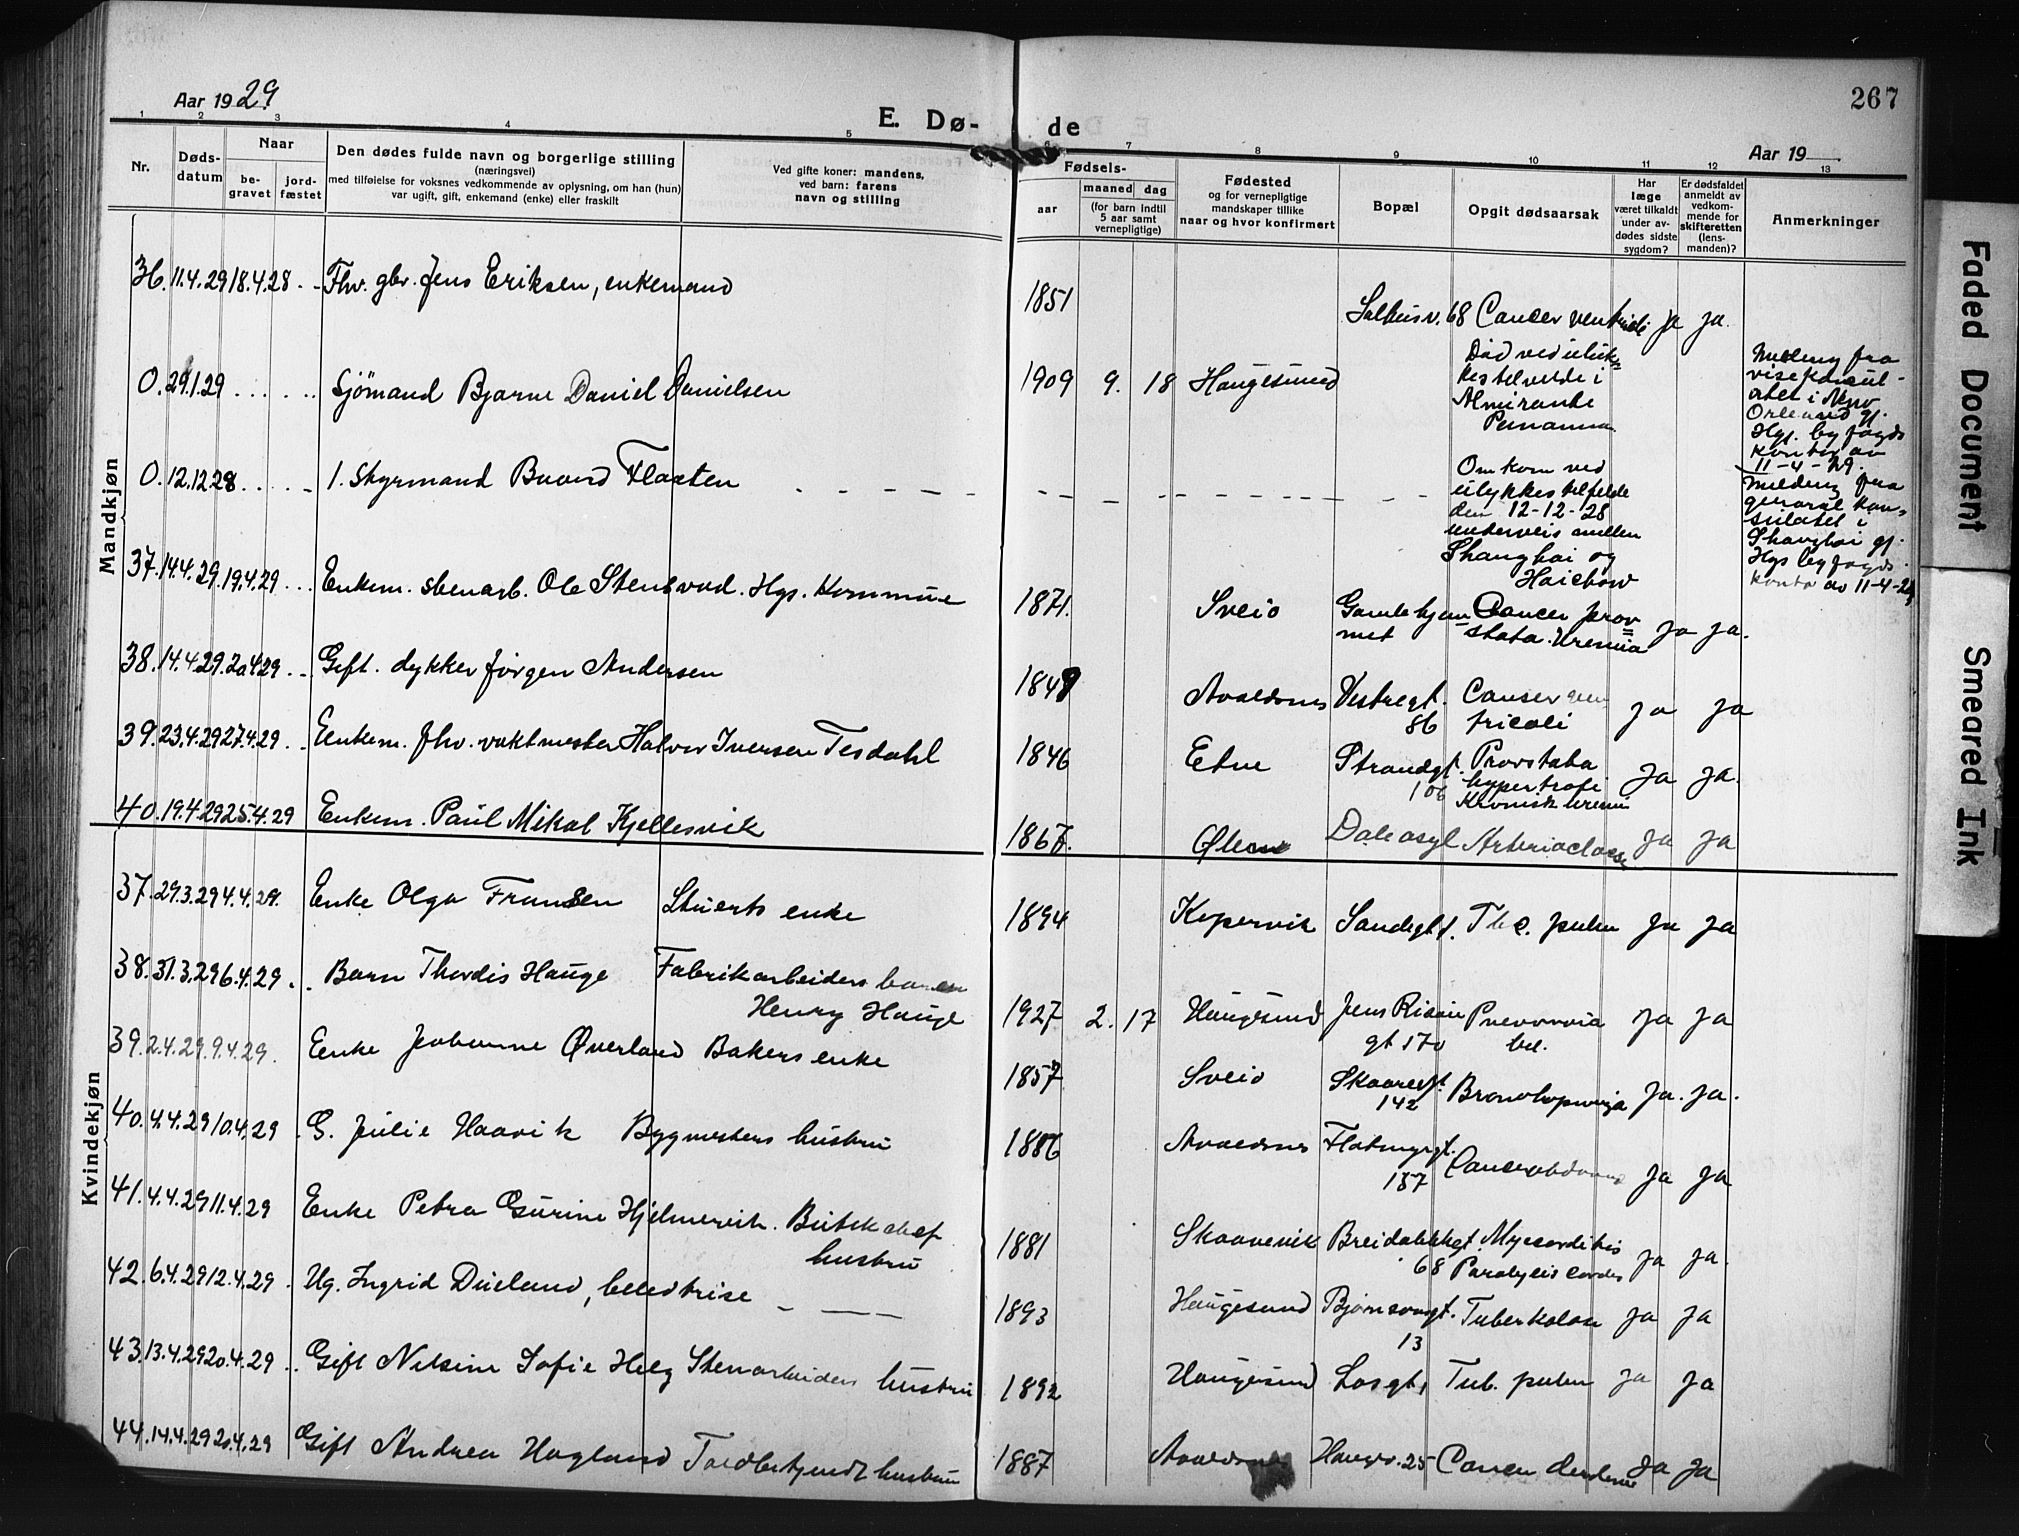 Aar 1929
E. Dø-
de
267
Aar 19
1 2 3 4 5 6 7 8 9 10 11 12 13
Nr.
Døds-
datum
Naar
be-
gravet
jord-
fæstet
Den dødes fulde navn og borgerlige stilling
(næringsvei)
med tilføielse for voksnes vedkommende av oplysning, om han (hun)
var ugift, gift, enkemand (enke) eller fraskilt
Ved gifte koner: mandens,
ved barn: farens
navn og stilling
Fødsels-
aar
maaned dag
(for barn indtil
5 aar samt
vernepligtige)
Fødested
og for vernepligtige
mandskaper tillike
naar og hvor konfirmert
Bopæl
Opgit dødsaarsak
Har
læge
været tilkaldt
under av-
dødes sidste
sygdom?
Er dødsfaldet
anmeldt av
vedkom-
mende for
skifteretten
(lens-
manden)?
Anmerkninger
Mandkjøn
36. 11.4.29 18.4.28 Fhv. gbr. Jens Eriksen, enkemand 1851 Salhusv. 68 Cancer ventriculi ja ja.
0. 29.1.29 Sjömand Bjarne Daniel Danielsen 1909 9. 18 Haugesund
Død ved ulük-
kestelvelde i
Almirante
Meldeng fra
visekonsul-
atet i New
Orleans gj.
Hgs. byfogds
kontor av
11-4-29.
0. 12.12.28 1. Styrmand Flaaten
Omkom ved
ulykkestelfelde
den 12-12-28
underveis mellem
Shanghai og
Haichow
Meldeng fra
general kon-
sulatet i
Shanghai gj.
Hgs byfogds
kontor av 11-4-29
37. 14.4.29. 19.4.29 Enkem. stenarb. Ole Stensvad. Hgs. Kommune 1871. Sveio Gamlehjem- Cancer prov
met stata. Uremia ja ja.
38. 14.4.29. 20.4.29 Gift. dykker Jørgen Andersen 1849 Avaldsnes Vestregt. Canser ven
86 tricoli ja ja
39. 23.4.29 27.4.29 Enkem. fhv. vaktmester Halvor Iversen Tesdahl 1846 Etne Strandgt. Provstata
106 hypertrofi
Kronisk uremi ja ja.
40. 19.4.29 25.4.29 Enkem. Paul Mikal Kjellesvik 1867. Ølen Dale asyl ja ja
Kvindekjøn
37. 29.3.29 4.4.29. Enke Olga Fransen Stuerts enke 1894 Kopervik Sandegt. Tbc. pulm ja ja
38. 31.3.29 6.4.29 Barn Thordis Hauge Fabrikarbeiders barn
Henry Hauge 1927 2. 17 Haugesund Jens Risøe
gt 170 ja ja
39. 2.4.29. 9.4.29. Enke Johanne Øverland Bakers enke 1857 Sveio Skaaregt.
142 ja. ja.
40. 4.4.29 10.4.29 G. Julie Haavik Bygmesters hustru 1886 Avaldsnes Flotmyrgt.
157 ja ja
41. 4.4.29 11.4.29 Enke Petra Gurine Hjelmervik. Butekchef
hustru 1881 Skaanevik Breidablikgt. Myocarditis
68 Paralysis cordis ja ja.
42. 6.4.29 12.4.29 Ug. Ingrid Dueland, 1893 Haugesund Bjørnsonsgt. Tuberkulose
13 ja ja
43. 13.4.29 20.4.29 Gift Nilsine Sofie Helg Stenarbeiders hustru 1892 Haugesund Tub. pulm ja ja
44. 14.4.29 20.4.29 Gift Andrea Hagland Toldbetjendt hustru 1887 Avaldsnes 25 ja ja
Faded Document
Smeared Ink